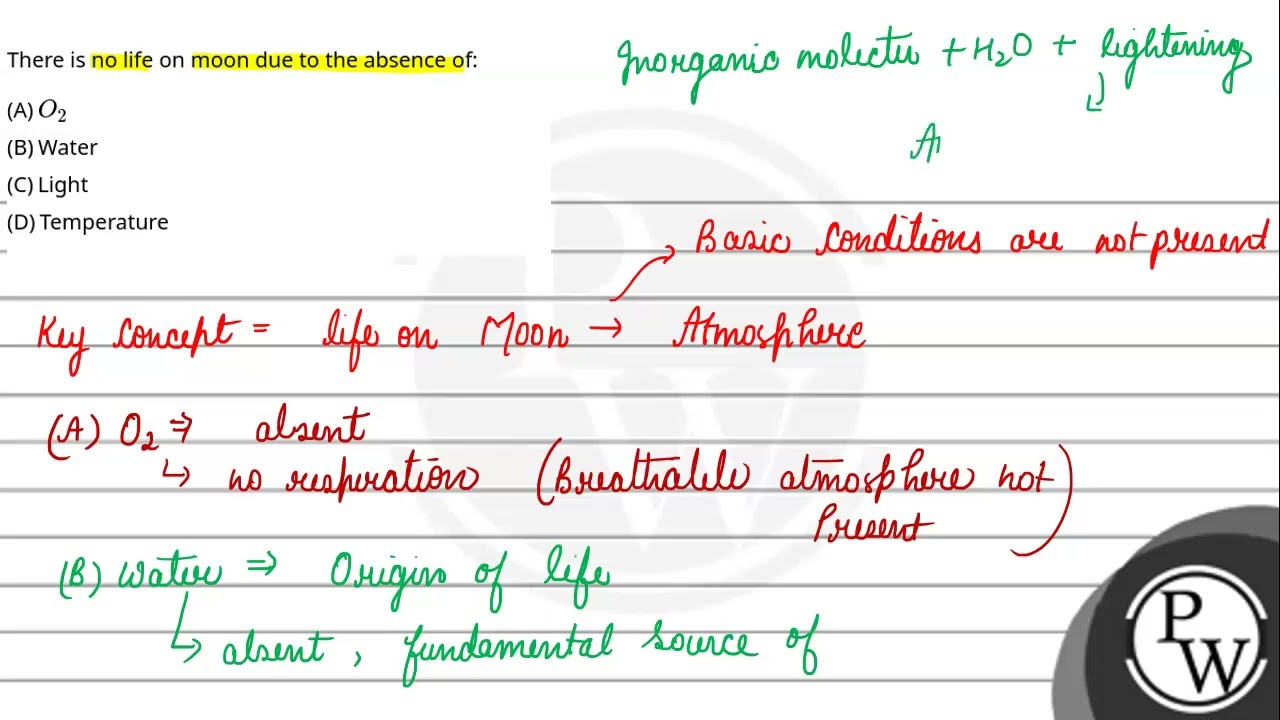 There is no life on moon due to the absence of:
(A) O₂
(B) Water
(C) Light
(D) Temperature
Inorganic molecu + H₂O + lightening
An
Basic conditions are not present
Key concept = life on Moon → Atmosphere
(A) O₂ ⇒ absent
↳ no respiration (Breathable atmosphere not
Present)
(B) Water ⇒ Origin of life
↳ absent, fundamental source of
PW
PW